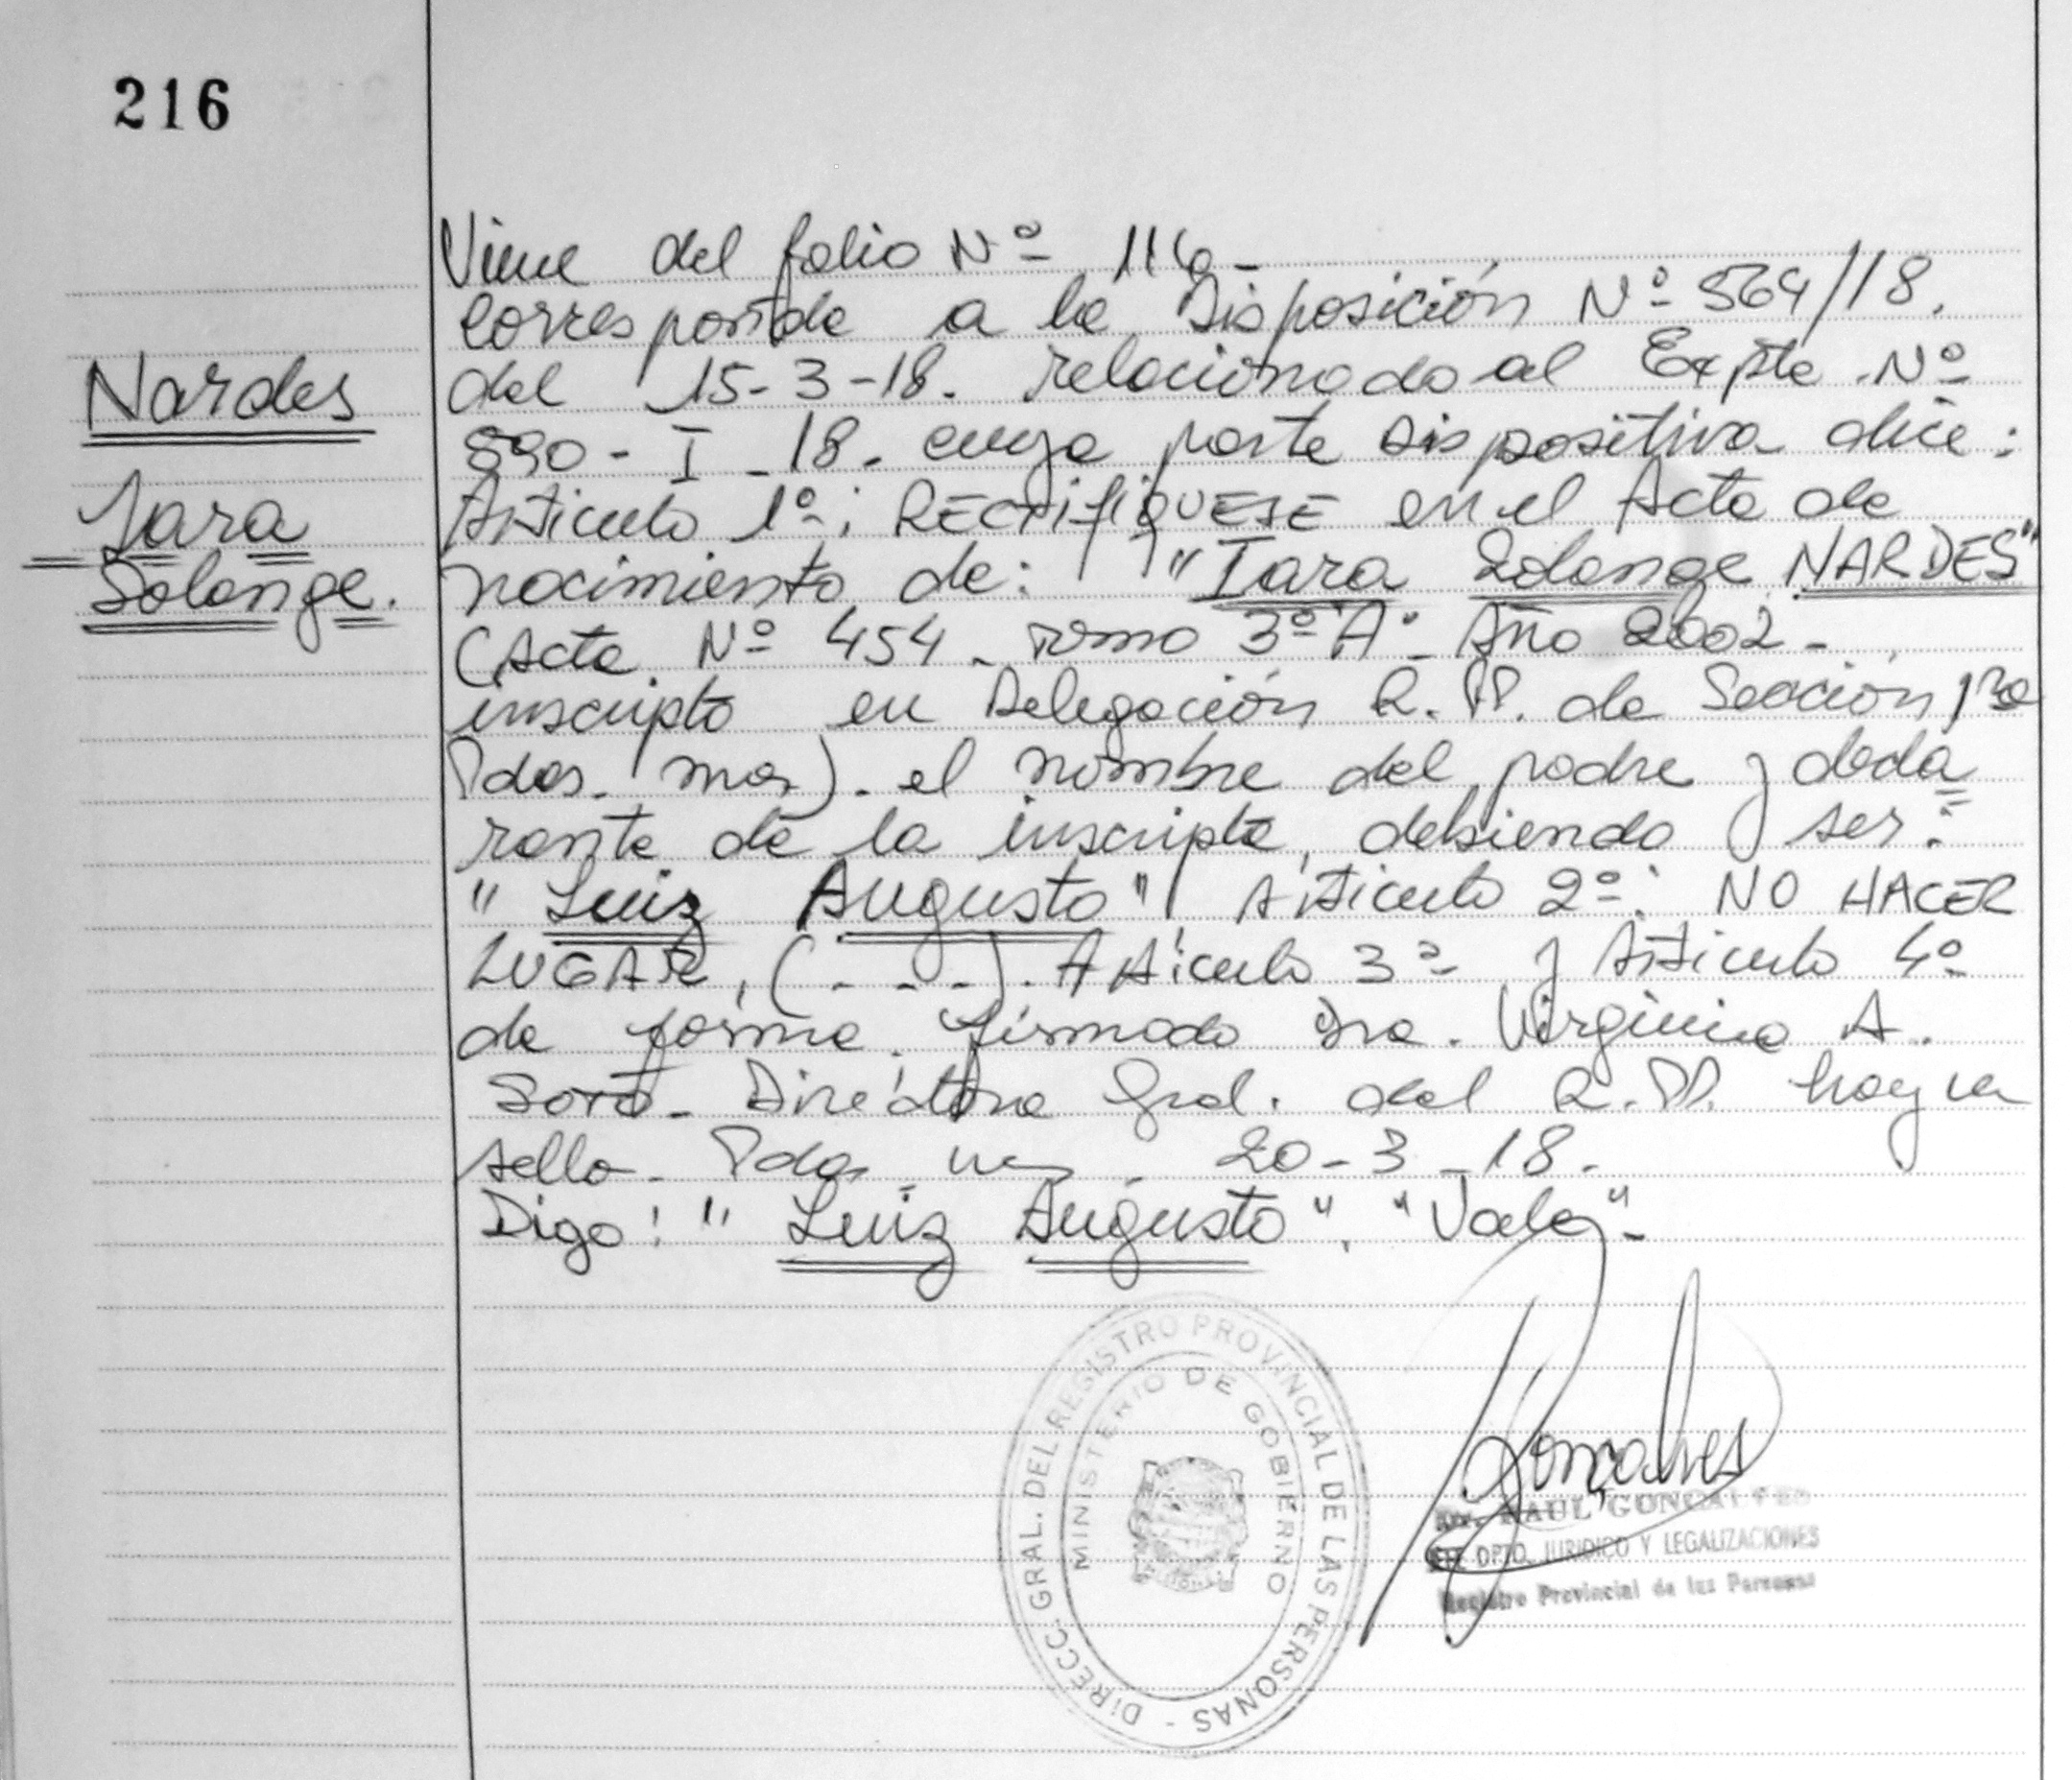 216
Nardes
Iara
Solange.
Viene del folio Nº 116-
Corresponde a la Disposición Nº 564/18.
del 15-3-18. relacionado al Expte. Nº
890 - I - 18. cuya parte dispositiva dice:
Artículo 1º: RECTIFIQUESE en el Acta de
nacimiento de: "Iara Solange NARDES"
(Acta Nº 454 - Tomo 3º "A" - Año 2002 -
inscripta en Delegación R.PP. de Sección 1ra
Pdas. Mns.). el nombre del padre y decla
rante de la inscripta, debiendo ser:
"Luiz Augusto" Artículo 2º: NO HACER
LUGAR, (- - -). Artículo 3º y Artículo 4º
de forma. firmado Dra. Virginia A.
Soto. Directora Gral. del R.PP. hay un
sello. Pdas. Mns. 20-3-18.
Digo: "Luiz Augusto". "Vale".
DIRECC. GRAL. DEL REGISTRO PROVINCIAL DE LAS PERSONAS -
MINISTERIO DE GOBIERNO
Gonçalves
RAUL GONCALVES
DPTO. JURIDICO Y LEGALIZACIONES
Registro Provincial de las Personas